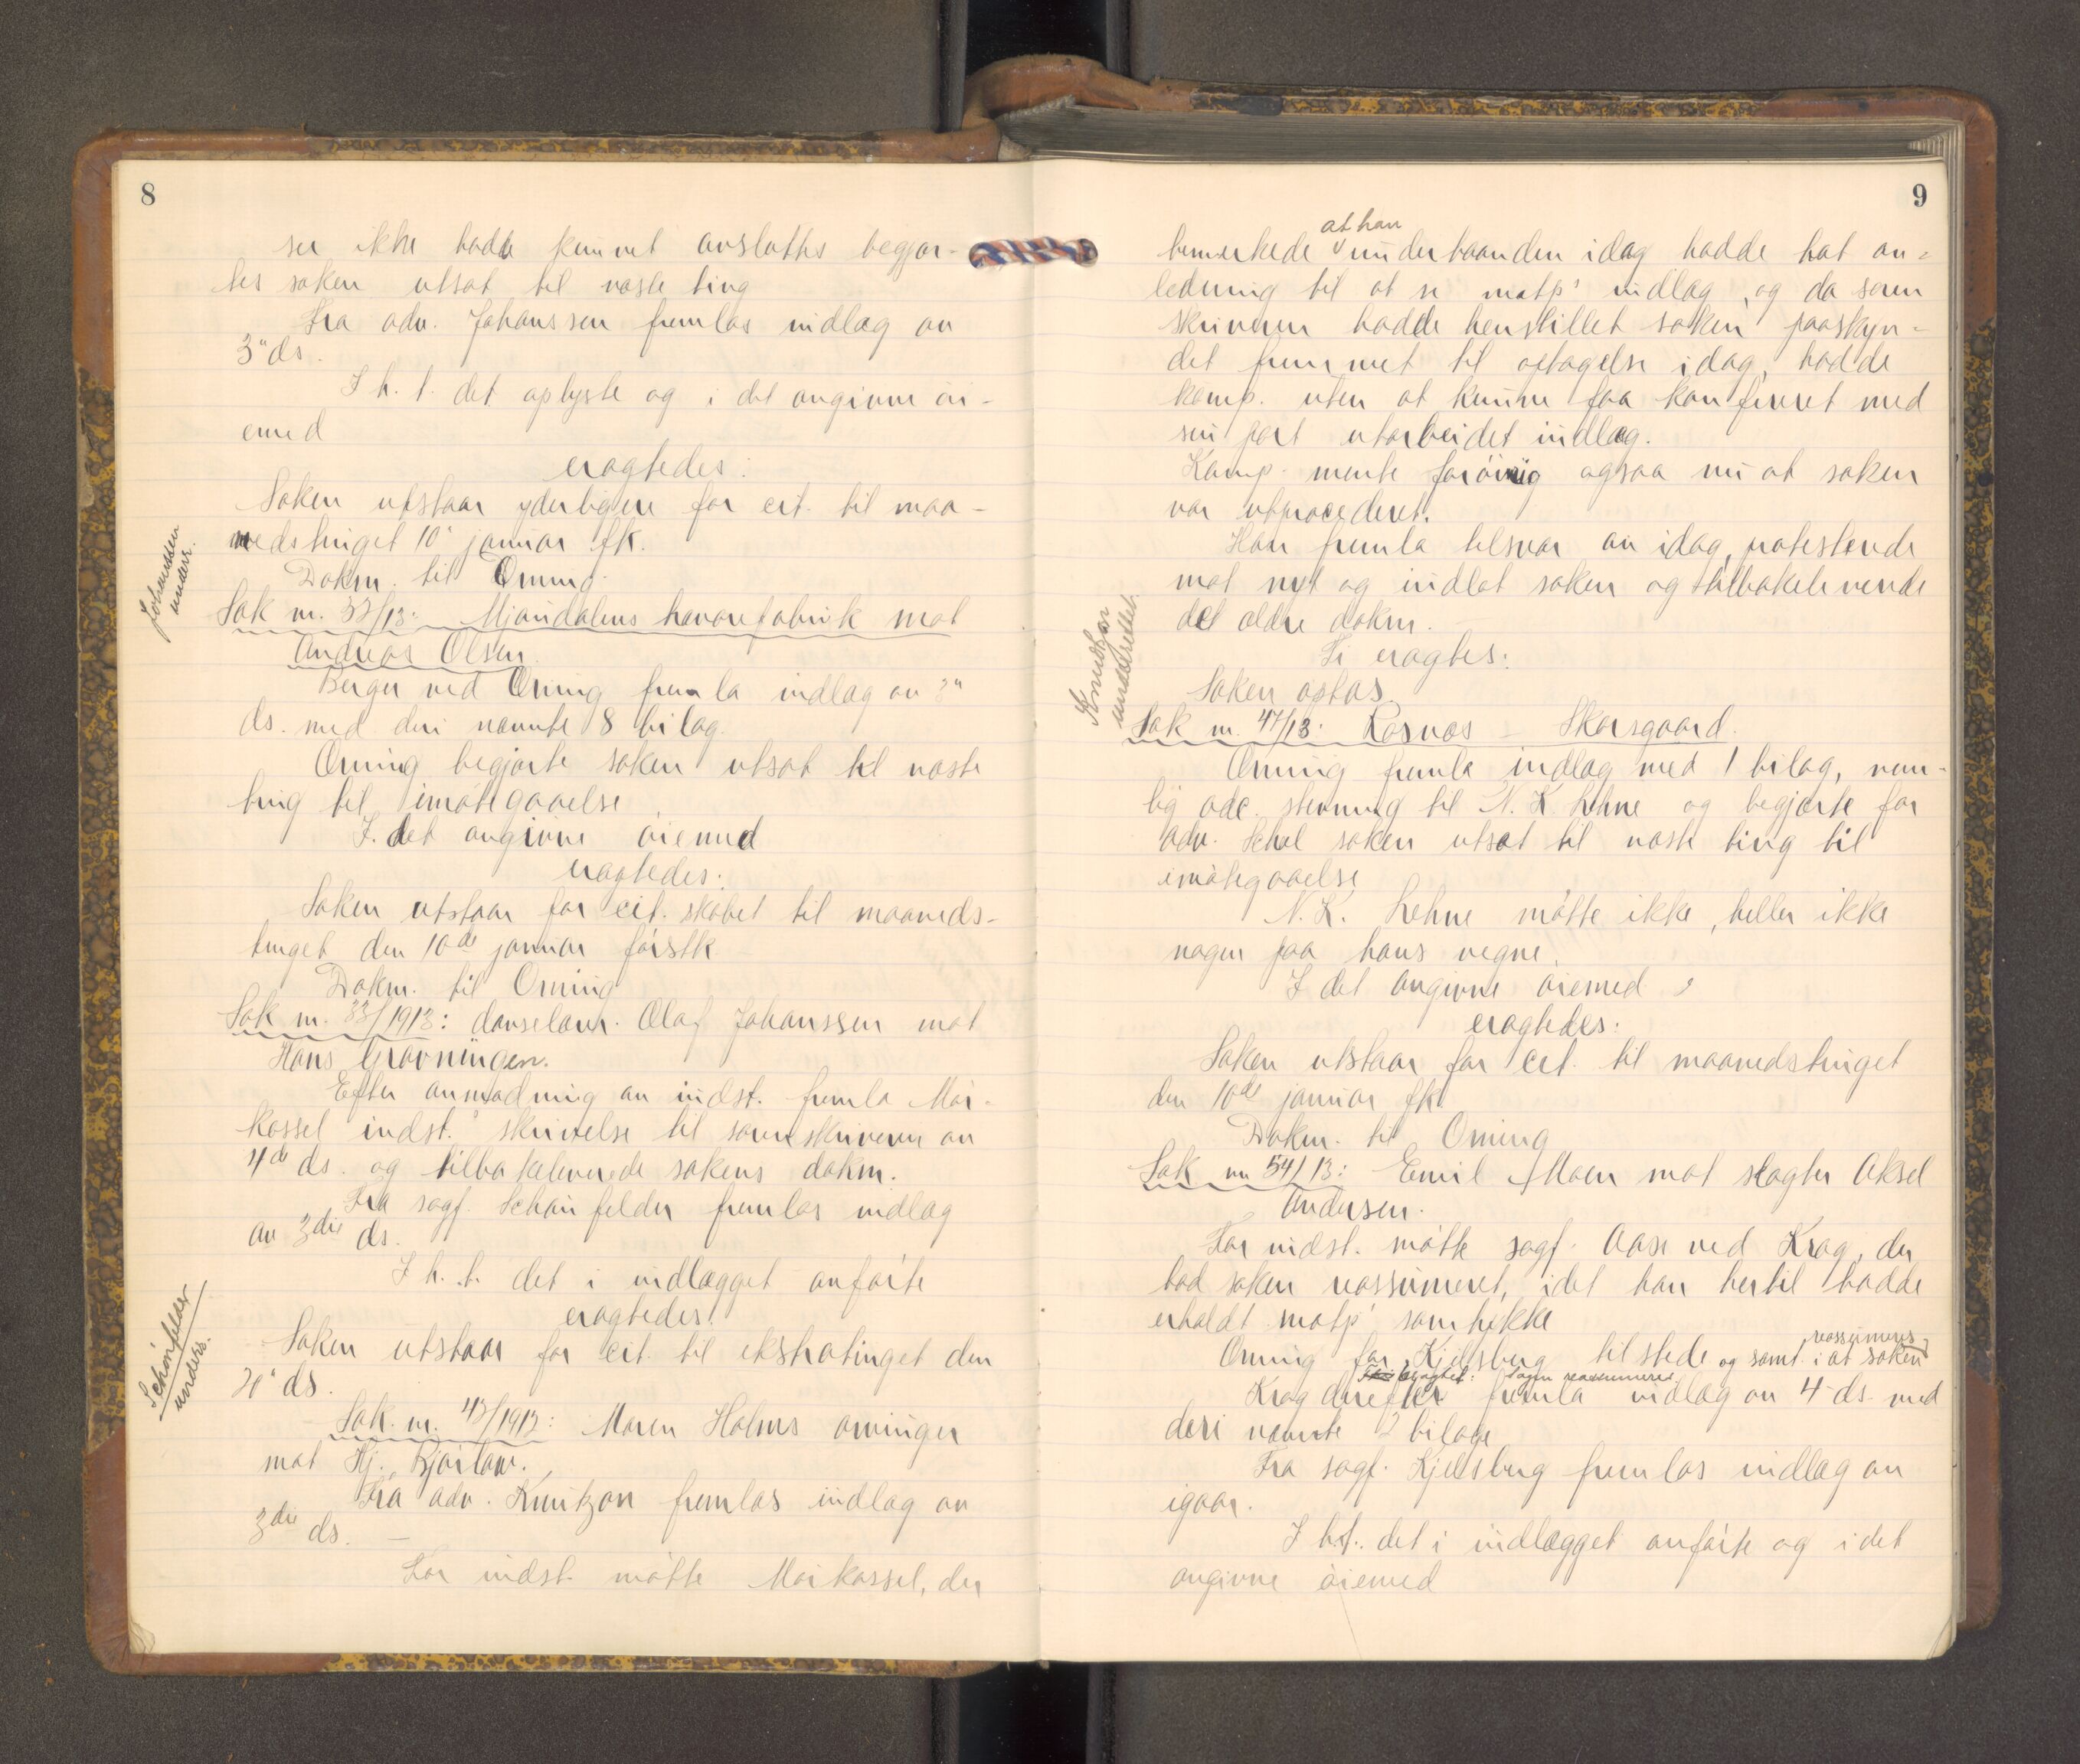 8
ser ikke hadde kunnet avsluttes begjær-
tes saken utsat til næste ting
Fra adv. Johanssen fremlas indlæg av
3" ds.
I h. t. det oplyste og i det angivne øi-
emed
eragtedes:
Saken utstaar yderligere for cit. til maa-
nedstinget 10' januar fk.
Dokm. til Omning.
Johanssen
underr.
Sak nr. 32/13: Mjøndalens varefabrik mot
Andreas Olsen
Berger ved Orning fremla indlæg av 3"
ds. med deri nævnte 8 bilag.
Orning begjærte saken utsat til næste
ting til imøtegaaelse
I det angivne øiemed
eragtedes:
Saken utstaar for cit. skabet til maaneds-
tinget den 10de januar førstk
Dokm. til Orning
Sak nr. 33/1913: danselærer Olaf Johanssen mot
Hans Gravningen.
Efter anmodning av indst. fremla Mør-
kassel indst.' skrivelse til sorenskriveren av
4de ds. og tilbakeleverede sakens dokm.
Fra sagf. Schønfelder fremlas indlæg
av 3die ds.
I h. t. det i indlægget anførte
eragtedes:
Schønfelder
underr.
Saken utstaar for cit. til ekstratinget den
20' ds.
Sak nr. 43/1912: Maren Holms arvinger
mot Hj. Bjørlow.
Fra adv. Knutzon fremlas indlæg av
3die ds. —
For indst. møtte Mørkassel, der
9
at han
bemerkede underhaanden idag hadde hat an-
ledning til at se motp' indlæg, og da soren
skriveren hadde henstillet saken paaskyn-
det fremmet til optagelse idag, hadde
komp. uten at kunne faa konferert med
sin part utarbeidet indlæg.
Komp. mente forøvrig ogsaa nu at saken
var utprocederet.
Han fremla tilsvar av idag, protesterende
mot nyt og indlot saken og tilbakeleverede
det ældre dokm.
Ti eragtes:
Saken optas.
Knudtzon
underrettet.
Sak nr. 47/13: Rosnæs – Skarsgaard.
Orning fremla indlæg med 1 bilag, nem-
lig adc. stevning til N. K. Lehne og begjærte for
adv. Schel saken utsat til næste ting til
imøtegaaelse
N. K. Lehne møtte ikke, heller ikke
nogen paa hans vegne.
I det angivne øiemed
eragtedes:
Saken utstaar for cit. til maanedstinget
den 10de januar fk.
Dokm. til Orning
Sak nr. 54/13: Emil Moen mot slagter Aksel
Andersen.
For indst. møtte sagf. Aase ved Krag, der
bad saken reassumeret, idet han hertil hadde
erholdt motp' samtykke
reassumeres
Orning for Kjelsberg tilstede og samt. i at saken
eragtet: Sagen reassumeres
Krag derefter fremla indlæg av 4 ds. med
deri nævnte 2 bilage
Fra sagf. Kjelsberg fremlas indlæg av
igaar.
I h. t. det i indlægget anførte og i det
angivne øiemed